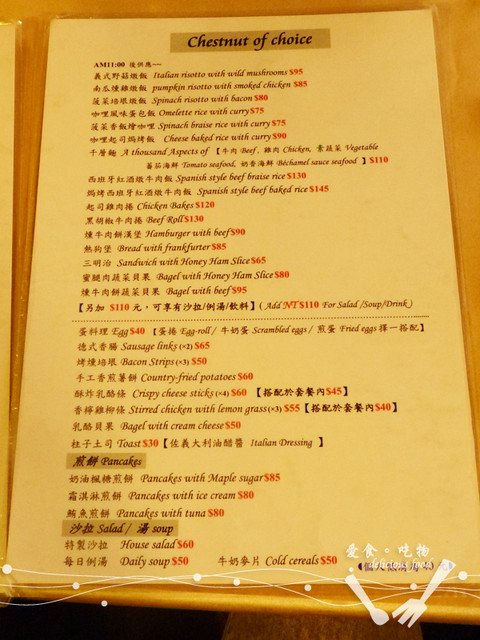 Chestnut of choice
AM11:00 後供應~~
義式野菇燉飯 Italian risotto with wild mushrooms $95
南瓜燻雞燉飯 pumpkin risotto with smoked chicken $85
菠菜培根燉飯 Spinach risotto with bacon $80
咖哩風味蛋包飯 Omelette rice with curry $75
菠菜香飯燴咖哩 Spinach braise rice with curry $75
咖哩起司焗烤飯 Cheese baked rice with curry $90
千層麵 A thousand Aspects of 【牛肉 Beef, 雞肉 Chicken, 素蔬菜 Vegetable
蕃茄海鮮 Tomato seafood, 奶香海鮮 Béchamel sauce seafood 】$110
西班牙紅酒燉牛肉飯 Spanish style beef braise rice $130
焗烤西班牙紅酒燉牛肉飯 Spanish style beef baked rice $145
起司雞肉捲 Chicken Bakes $120
黑胡椒牛肉捲 Beef Roll $130
燻牛肉餅漢堡 Hamburger with beef $90
熱狗堡 Bread with frankfurter $85
三明治 Sandwich with Honey Ham Slice $65
蜜腿肉蔬菜貝果 Bagel with Honey Ham Slice $80
燻牛肉蔬菜貝果 Bagel with beef $95
【另加 $110 元，可享有沙拉/例湯/飲料】( Add NT$110 For Salad /Soup/Drink )
蛋料理 Egg $40 【蛋捲 Egg-roll / 牛奶蛋 Scrambled eggs / 煎蛋 Fried eggs 擇一搭配】
德式香腸 Sausage links (×2) $65
烤燻培根 Bacon Strips (×3) $50
手工香煎薯餅 Country-fried potatoes $60
酥炸乳酪條 Crispy cheese sticks (×4) $60 【搭配於套餐內$45】
香檸雞柳條 Stirred chicken with lemon grass (×3) $55【搭配於套餐內$40】
乳酪貝果 Bagel with cream cheese $50
柱子土司 Toast $30【佐義大利油醋醬 Italian Dressing 】
煎餅 Pancakes
奶油楓糖煎餅 Pancakes with Maple sugar $85
霜淇淋煎餅 Pancakes with ice cream $80
鮪魚煎餅 Pancakes with tuna $80
沙拉 Salad / 湯 soup
特製沙拉 House salad $60
每日例湯 Daily soup $50 牛奶麥片 Cold cereals $50
愛食。吃物
delicious foods